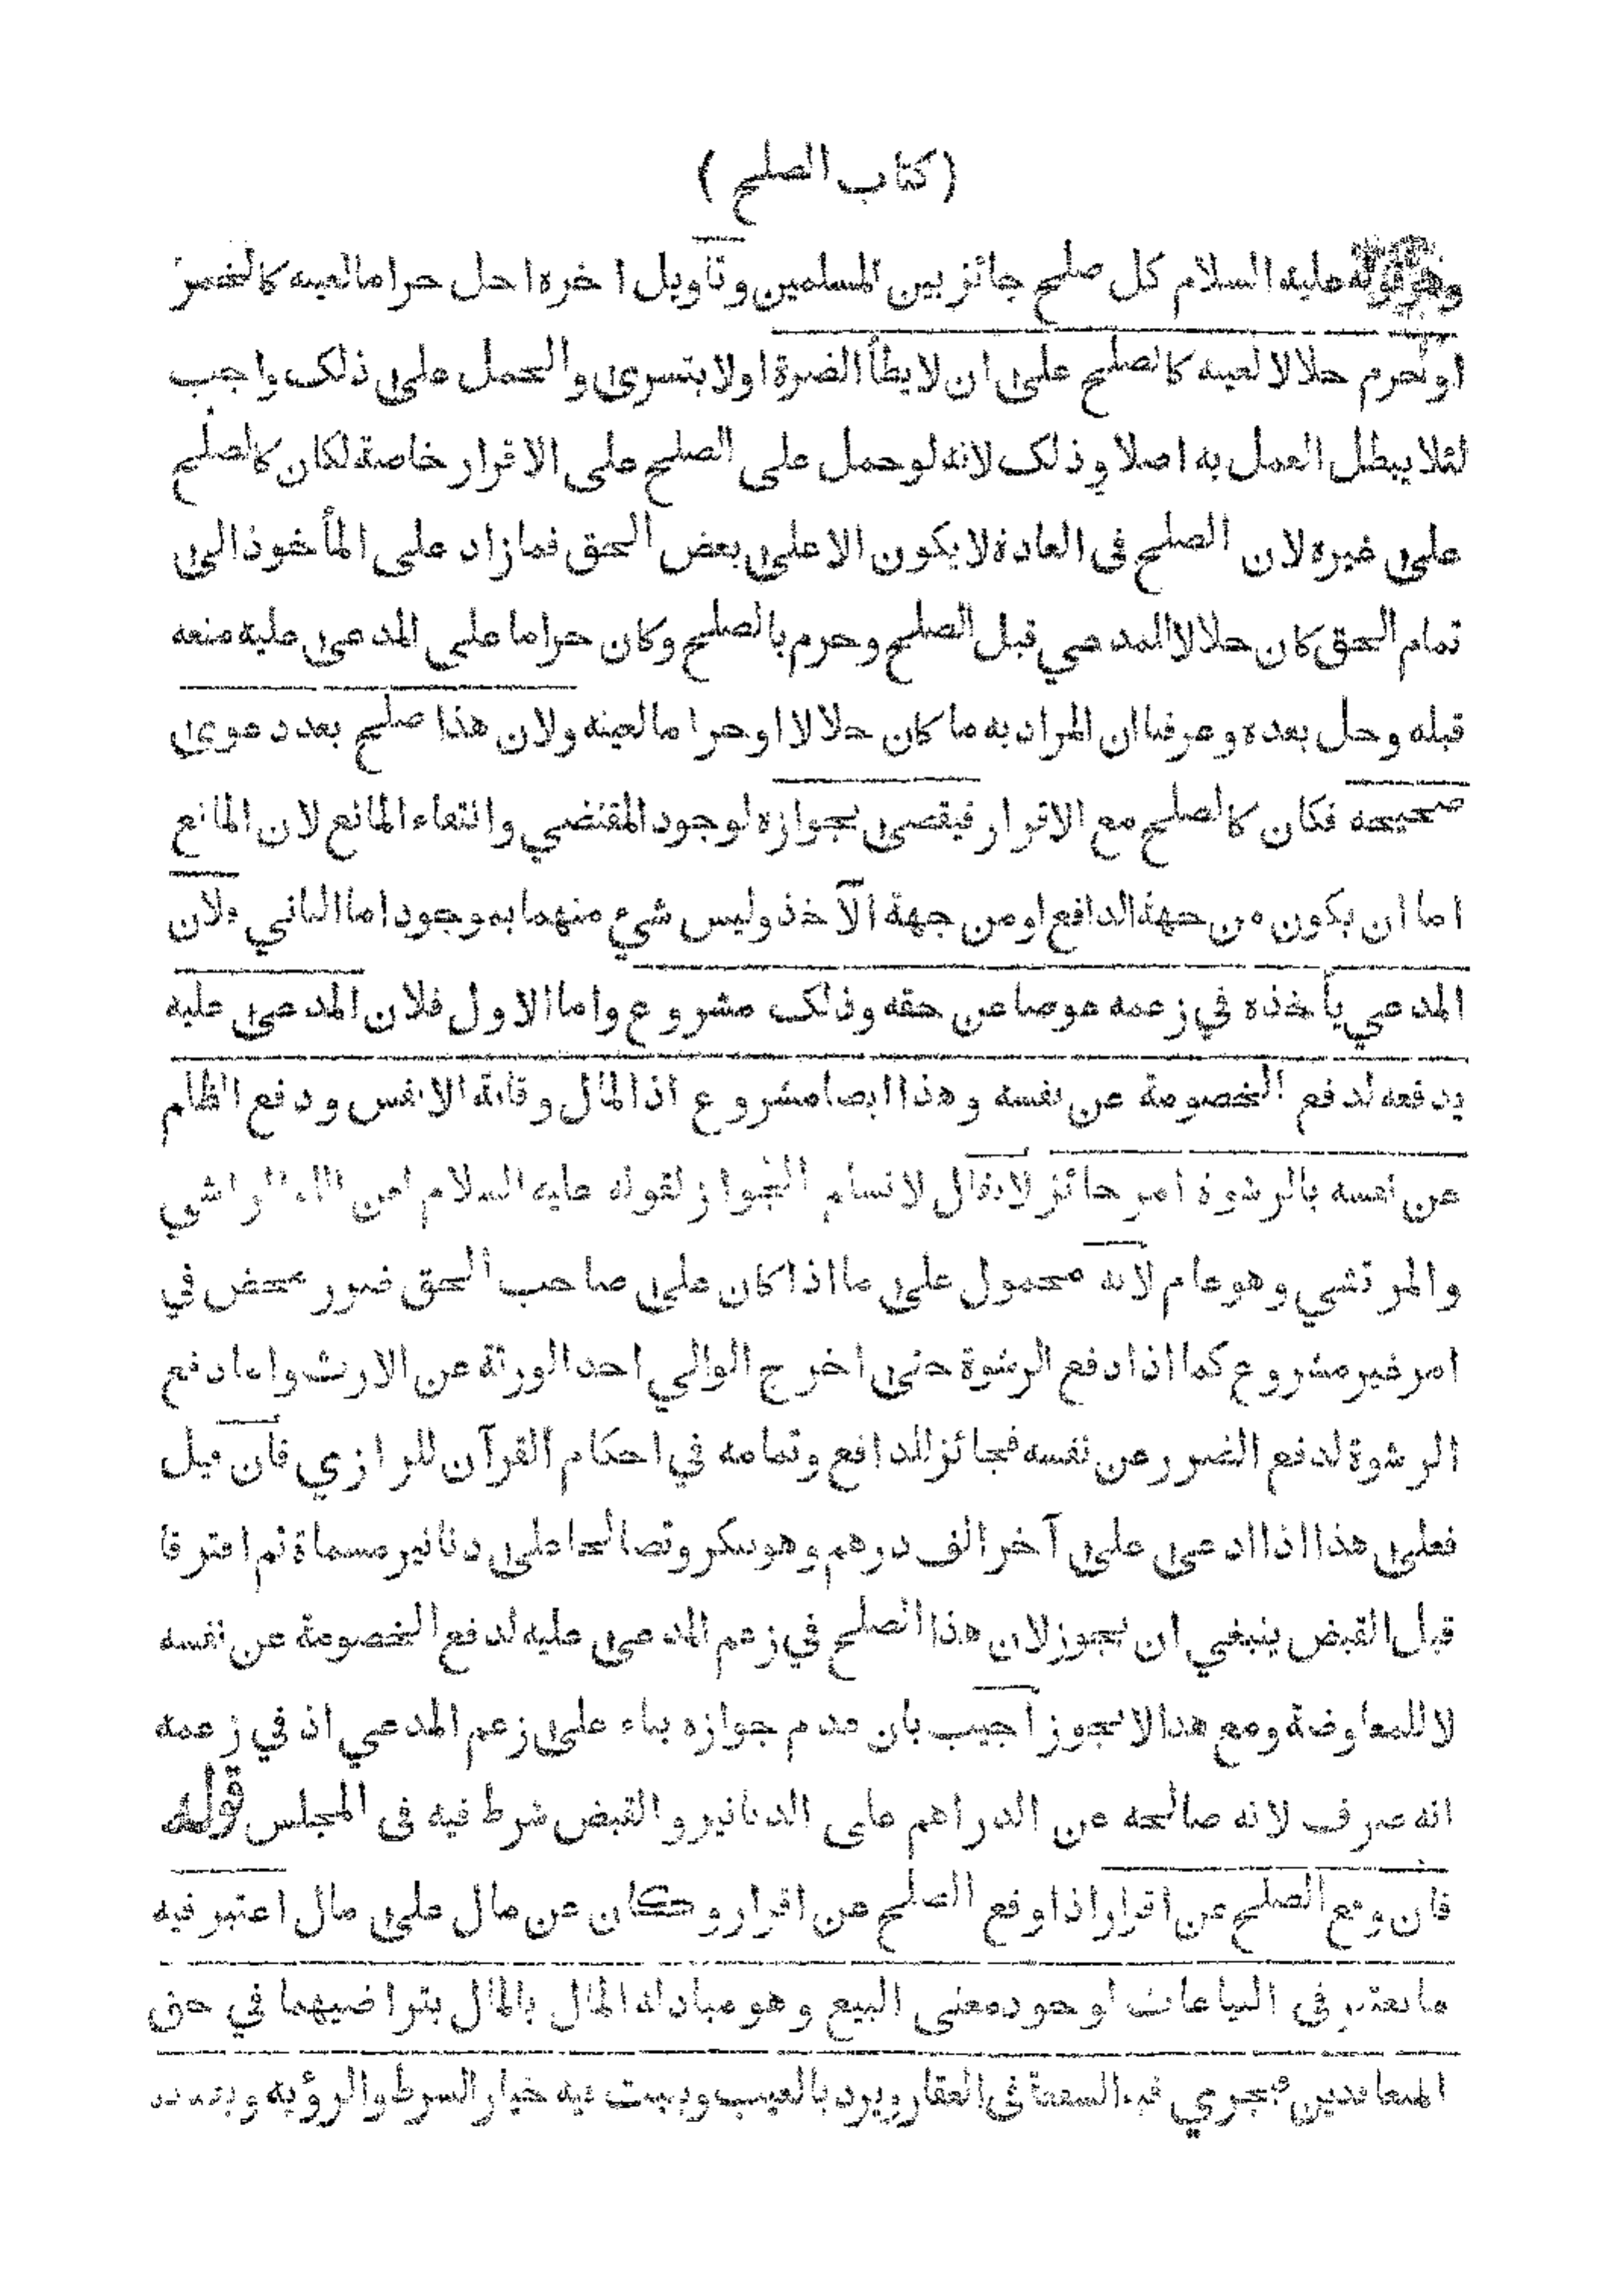 ( كتاب الصلح )
وهو قوله عليه السلام كل صلح جائز بين المسلمين وتأويل اخره احل حراما لعينه كالخمر
او حرم حلالا لعينه كالصلح على ان لا يطأ الضرة او لا يتسرى والحمل على ذلك واجب
لئلا يبطل العمل به اصلا وذلك لانه لو حمل على الصلح على الاقرار خاصة لكان كالصلح
على غيره لان الصلح فى العادة لا يكون الا على بعض الحق فما زاد على المأخوذ الى
تمام الحق كان حلالا للمدعي قبل الصلح وحرم بالصلح وكان حراما على المدعى عليه منعه
قبله وحل بعده وعرفنا ان المراد به ما كان حلالا او حراما لعينه ولان هذا صلح بعد دعوى
صحيحه فكان كالصلح مع الاقرار فيقضى بجوازه لوجود المقتضي وانتفاء المانع لان المانع
اما ان يكون من جهة الدافع او من جهة الآخذ وليس شيء منهما بموجود اما الثاني فلان
المدعي يأخذه في زعمه عوضا عن حقه وذلك مشروع واما الاول فلان المدعى عليه
يدفعه لدفع الخصومة عن نفسه وهذا ايضا مشروع اذ المال وقاية الانفس ودفع الظلم
عن نفسه بالرشوة امر جائز لا يقال لا نسلم الجواز لقوله عليه السلام لعن الله الراشي
والمرتشي وهو عام لانه محمول على ما اذا كان على صاحب الحق ضرر محض في
امر غير مشروع كما اذا دفع الرشوة حتى اخرج الوالي احد الورثة عن الارث واما دفع
الرشوة لدفع الضرر عن نفسه فجائز للدافع وتمامه في احكام القرآن للرازي فان قيل
فعلى هذا اذا ادعى على آخر الف درهم وهو ينكر وتصالحا على دنانير مسماة ثم افترقا
قبل القبض ينبغي ان يجوز لان هذا الصلح في زعم المدعى عليه لدفع الخصومة عن نفسه
لا للمعاوضة ومع هذا لا يجوز أجيب بان عدم جوازه بناء على زعم المدعي اذ في زعمه
انه صرف لانه صالحه عن الدراهم على الدنانير والقبض شرط فيه فى المجلس قوله
فان وقع الصلح عن اقرار اذا وقع الصلح عن اقرار وكان عن مال على مال اعتبر فيه
ما يعتبر فى البياعات لوجود معنى البيع وهو مبادلة المال بالمال بتراضيهما في حق
المتعاقدين فيجري فيه الشفعة فى العقار ويرد بالعيب ويثبت فيه خيار الشرط والرؤية